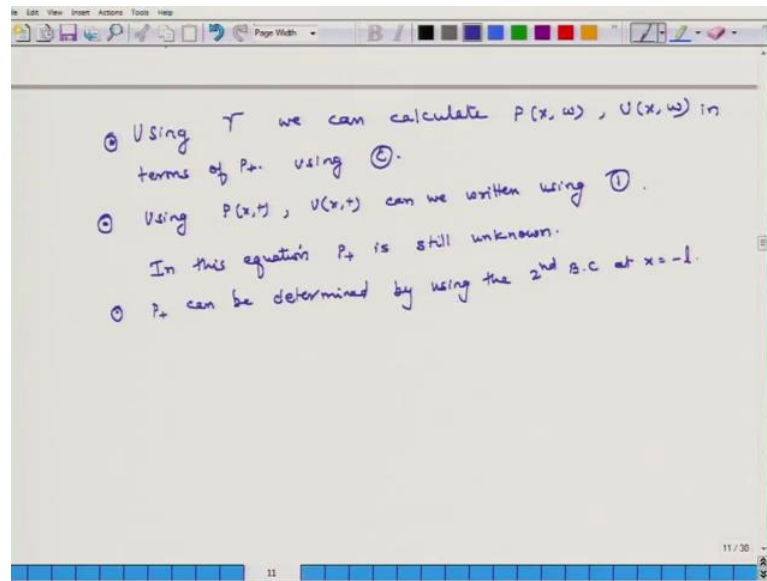 File Edit View Insert Actions Tools Help
Page Width B I
⊙ Using r we can calculate P(x, ω), U(x, ω) in
terms of P+. Using ②.
⊙ Using P(x,t), U(x,t) can we written using ①.
In this equation P+ is still unknown.
⊙ P+ can be determined by using the 2nd B.C at x = -l.
11 / 30
11